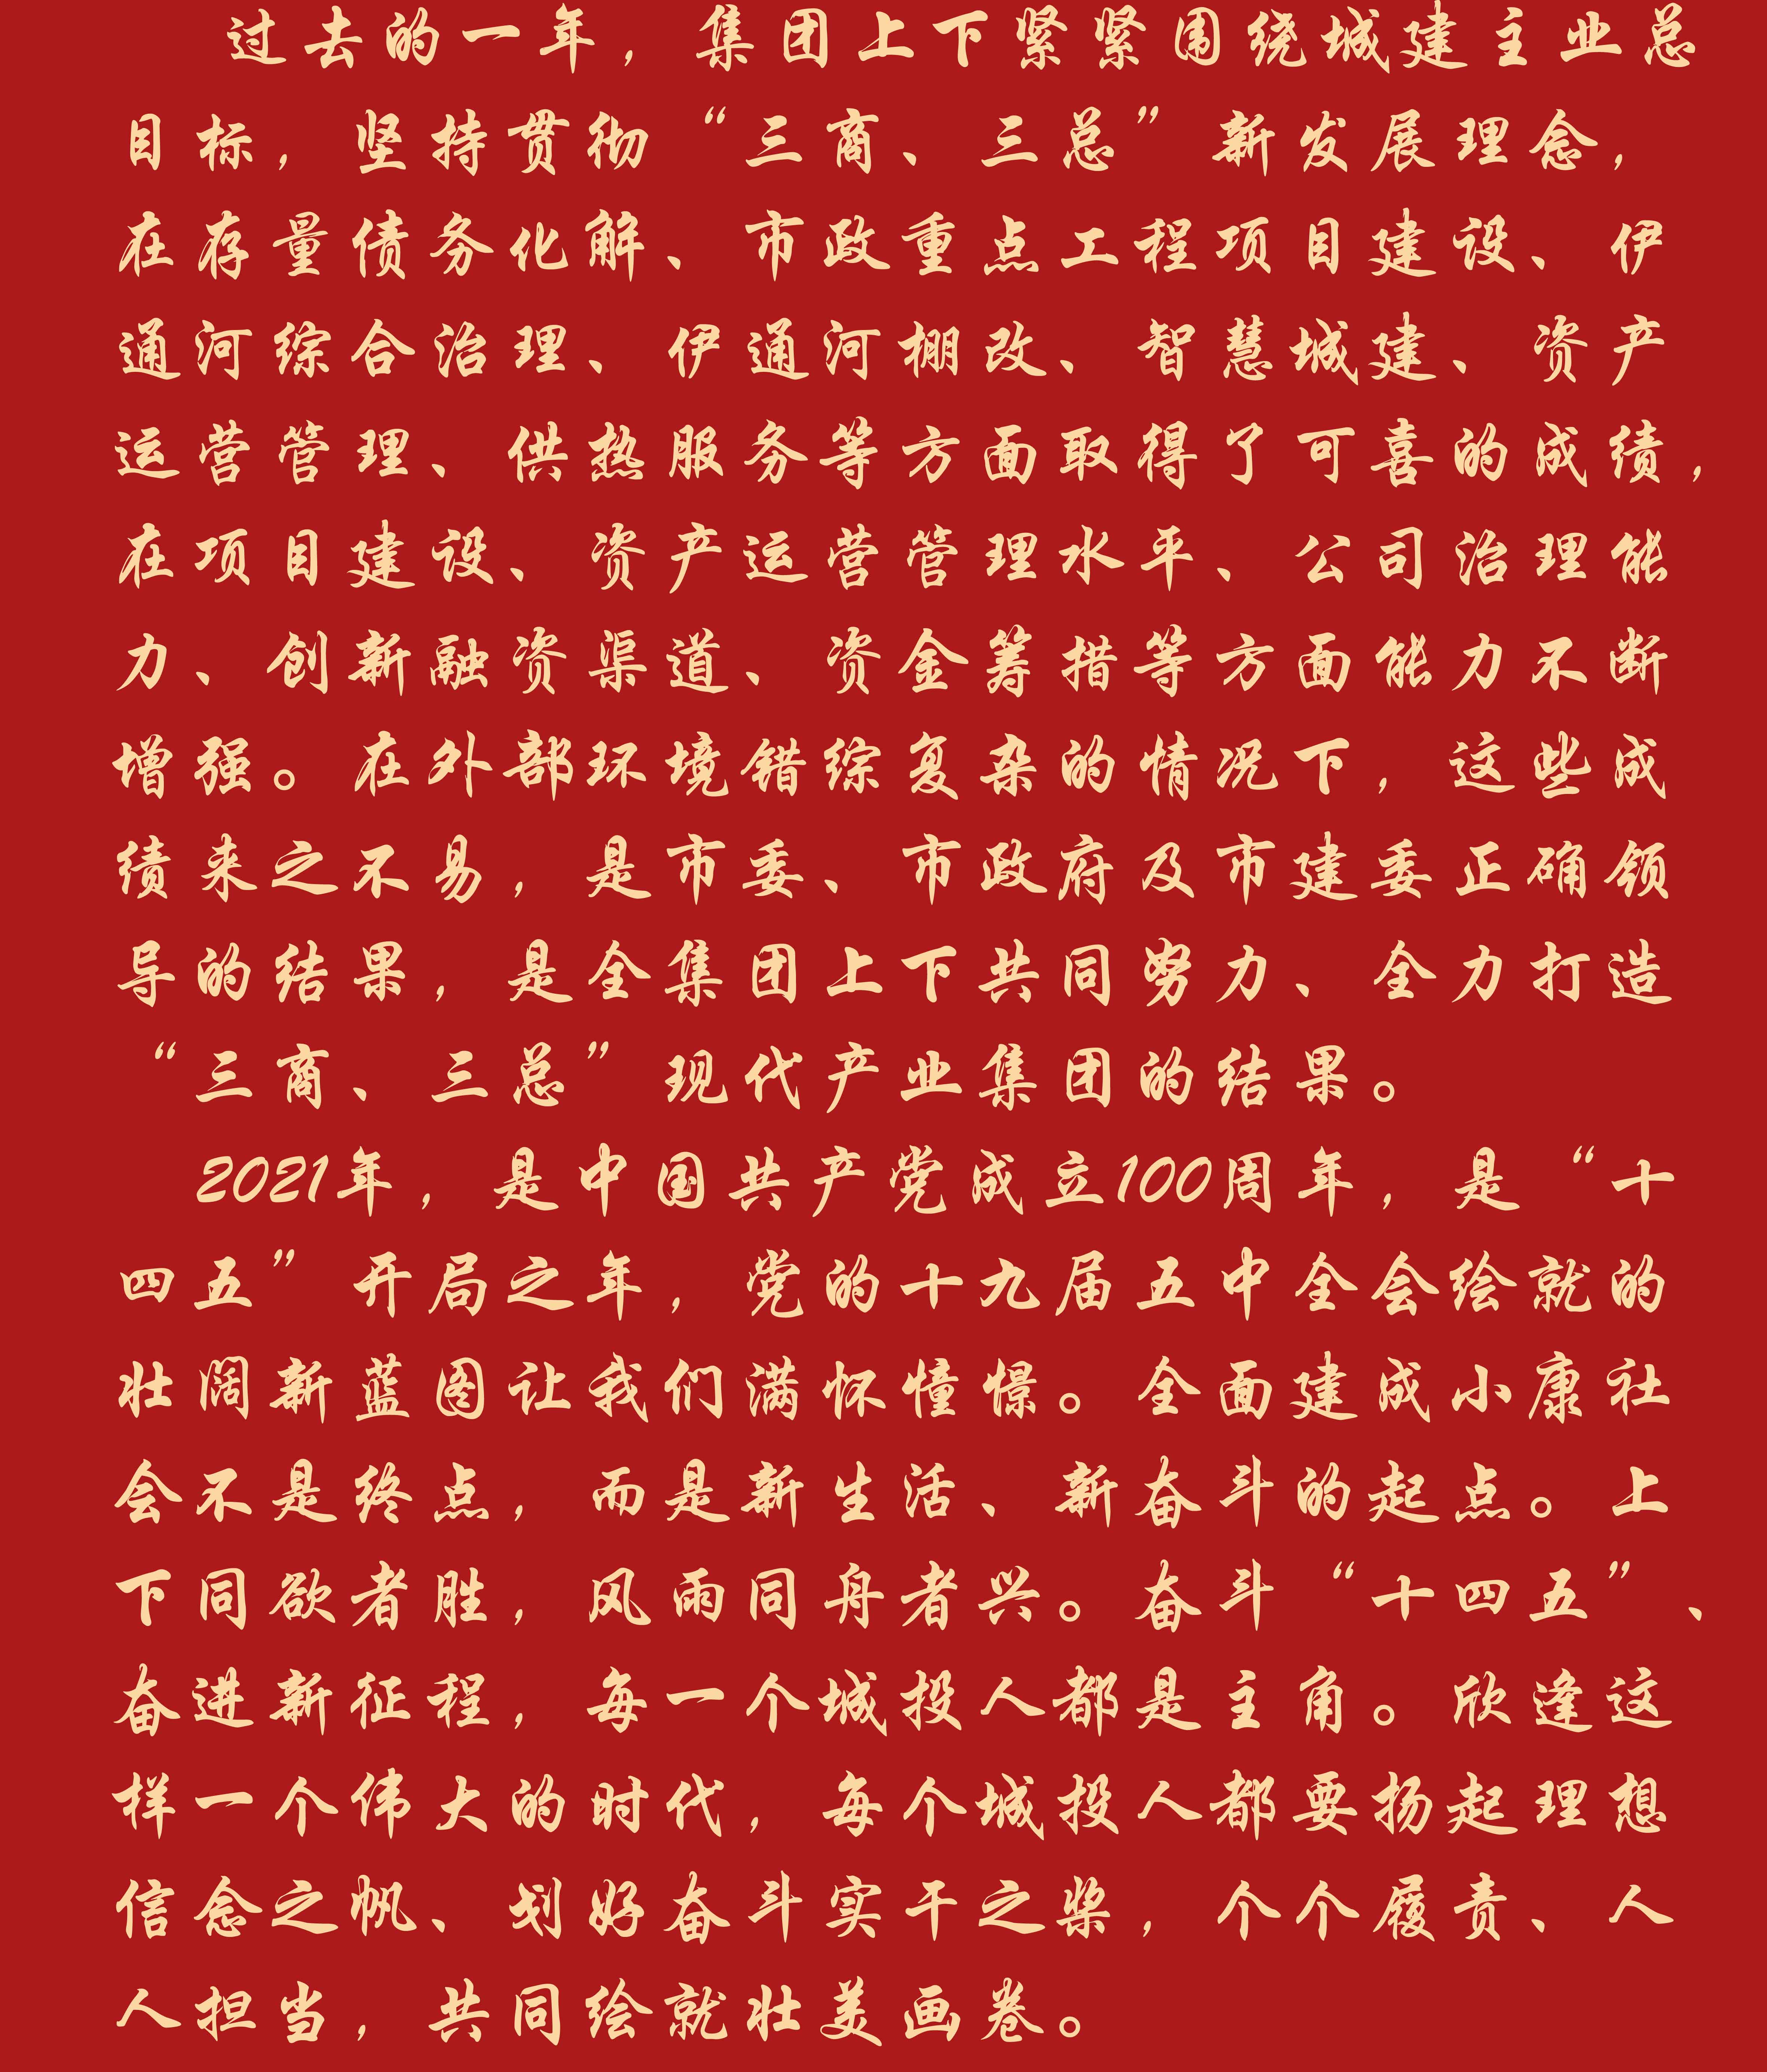 过去的一年，集团上下紧紧围绕城建主业总
目标，坚持贯彻“三商、三总”新发展理念，
在存量债务化解、市政重点工程项目建设、伊
通河综合治理、伊通河棚改、智慧城建、资产
运营管理、供热服务等方面取得了可喜的成绩，
在项目建设、资产运营管理水平、公司治理能
力、创新融资渠道、资金筹措等方面能力不断
增强。在外部环境错综复杂的情况下，这些成
绩来之不易，是市委、市政府及市建委正确领
导的结果，是全集团上下共同努力、全力打造
“三商、三总”现代产业集团的结果。
2021年，是中国共产党成立100周年，是“十
四五”开局之年，党的十九届五中全会绘就的
壮阔新蓝图让我们满怀憧憬。全面建成小康社
会不是终点，而是新生活、新奋斗的起点。上
下同欲者胜，风雨同舟者兴。奋斗“十四五”、
奋进新征程，每一个城投人都是主角。欣逢这
样一个伟大的时代，每个城投人都要扬起理想
信念之帆、划好奋斗实干之桨，个个履责、人
人担当，共同绘就壮美画卷。